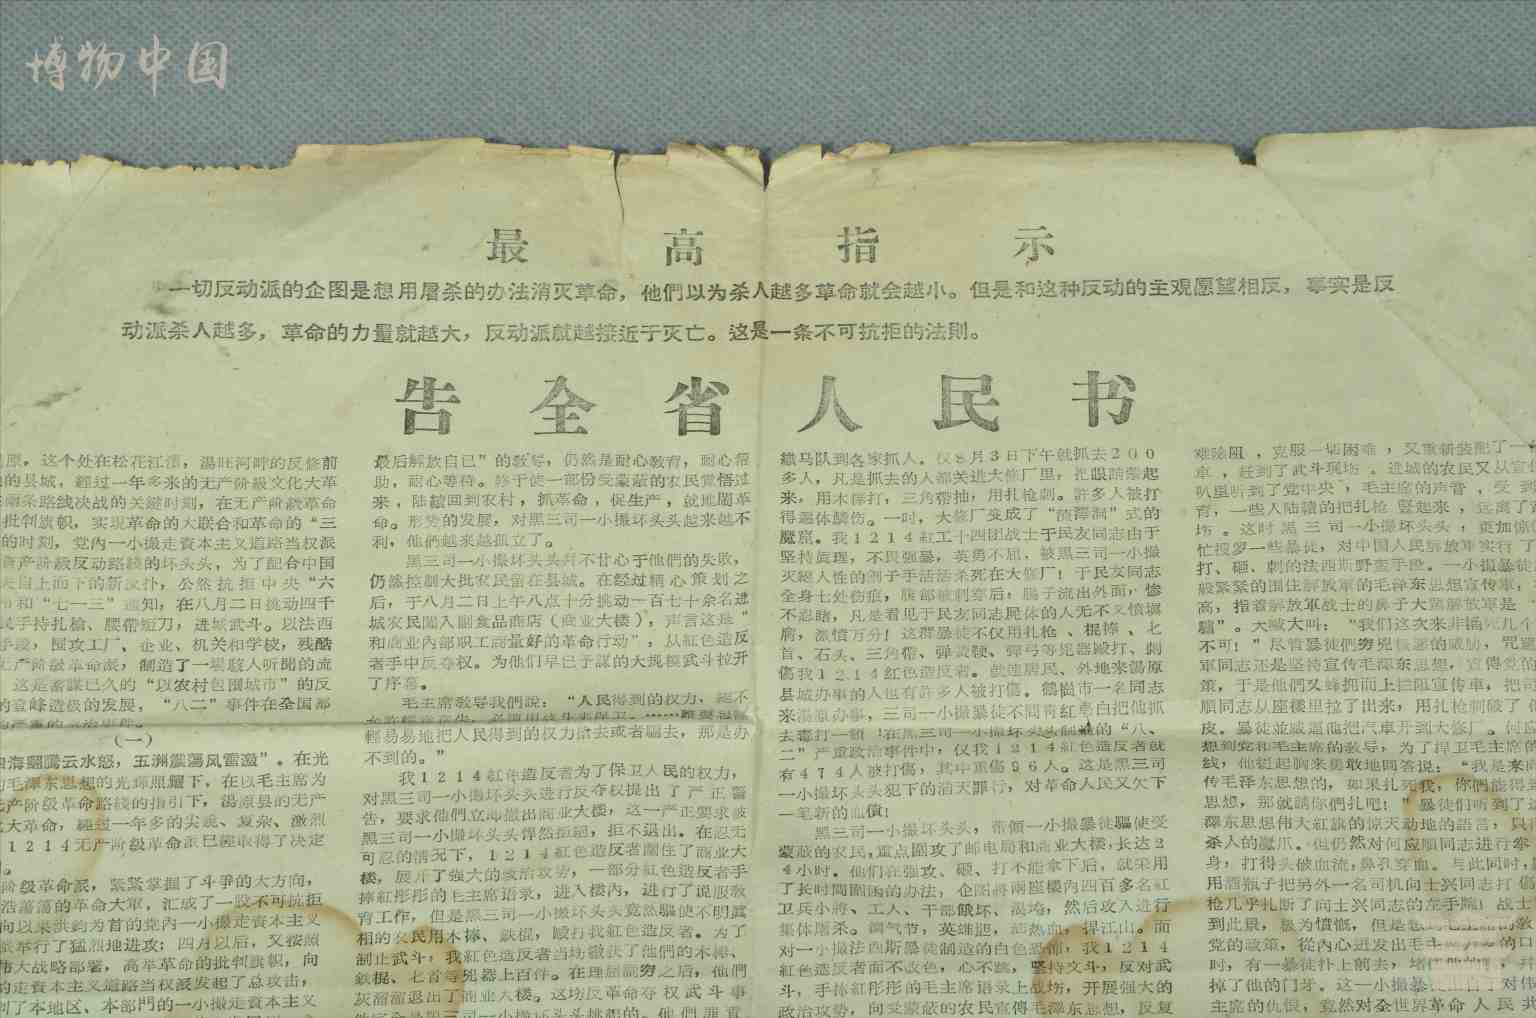 博物中国
最高指示
一切反动派的企图是想用屠杀的办法消灭革命，他們以为杀人越多革命就会越小。但是和这种反动的主观愿望相反，事实是反
动派杀人越多，革命的力量就越大，反动派就越接近于灭亡。这是一条不可抗拒的法則。
告全省人民书
原，这个处在松花江濱，湯旺河畔的反修前
的县城，經过一年多来的无产阶級文化大革
两条路线决战的关鍵时刻，在无产阶級革命
批判旗帜，实現革命的大联合和革命的“三
的时刻，党內一小撮走資本主义道路当权派
資产阶級反动路綫的坏头头，为了配合中国
自上而下的新反扑，公然抗拒中央“六
和“七一三”通知，在八月二日挑动四千
民手持扎槍、腰带短刀，进城武斗。以法西
手段，围攻工厂、企业、机关和学校，残酷
无产阶級革命派，制造了一場駭人听聞的流
这是蓄謀已久的“以农村包围城市”的反
的登峰造极的发展，“八二”事件在全国都
（一）
四海翻騰云水怒，五洲震蕩风雷激”。在光
的毛澤东思想的光輝照耀下，在以毛主席为
无产阶級革命路綫的指引下，湯原县的无产
大革命，經过一年多的尖銳、复杂、激烈
1214无产阶級革命派已經取得了决定
阶級革命派，紧紧掌握了斗爭的大方向，
浩蕩蕩的革命大軍，汇成了一股不可抗拒
向以来洪鈞为首的党內一小撮走資本主义
派举行了猛烈地进攻；四月以后，又按照
偉大战略部署，高举革命的批判旗帜，向
的走資本主义道路当权派发起了总攻击，
到了本地区、本部門的一小撮走資本主义
最后解放自己”的教导，仍然是耐心教育，耐心帮
助，耐心等待。終于使一部份受蒙蔽的农民觉悟过
来，陆續回到农村，抓革命，促生产，就地閙革
命。形势的发展，对黑三司一小撮坏头头越来越不
利，他們越来越孤立了。
黑三司一小撮坏头头幷不甘心于他們的失敗，
仍然控制大批农民留在县城。在經过精心策划之
后，于八月二日上午八点十分挑动一百七十余名进
城农民闖入副食品商店（商业大楼），声言这是“
和商业內部职工商量好的革命行动”，从紅色造反
者手中反夺权。为他們早已予謀的大規模武斗拉开
了序幕。
毛主席教导我們說：“人民得到的权力，絕不
輕易易地把人民得到的权力搶去或者騙去，那是办
不到的。”
我1214紅色造反者为了保卫人民的权力，
对黑三司一小撮坏头头进行反夺权提出了严正警
告，要求他們立即撤出商业大楼，这一严正要求被
黑三司一小撮坏头头悍然拒絕，拒不退出。在忍无
可忍的情况下，1214紅色造反者圍住了商业大
楼，展开了强大的政治攻势，一部分紅色造反者手
捧紅彤彤的毛主席语录，进入楼內，进行了说服教
育工作，但是黑三司一小撮坏头头竟然驅使不明真
相的农民用木棒、鉄棍，毆打我紅色造反者。为了
制止武斗，我紅色造反者当場徽获了他們的木棒、
鉄棍、七首等兇器上百件。在理屈詞穷之后，他們
灰溜溜退出了商业大楼。这場反革命夺权武斗事
織马队到各家抓人。仅8月3日下午就抓去200
多人，凡是抓去的人都关进大修厂里，把眼睛蒙起
来，用木棒打，三角带抽，用扎枪刺。許多人被打
得遍体鱗伤。一时，大修厂变成了“渣滓洞”式的
魔窟。我1214紅工十四团战士于民友同志由于
坚持真理，不畏强暴，英勇不屈，被黑三司一小撮
灭絕人性的劊子手活活杀死在大修厂！于民友同志
全身七处伤痕，腹部被刺穿后，腸子流出外面，惨
不忍睹，凡是看见于民友同志屍体的人无不义憤塡
膺，激憤万分！这群暴徒不仅用扎枪、棍棒、七
首、石头、三角帶、弹簧鞭、弹弓等兇器毆打、刺
傷我1214紅色造反者。就連居民、外地来湯原
县城办事的人也有許多人被打傷。鶴崗市一名同志
来湯原办事，三司一小撮暴徒不問青紅皂白把他抓
去毒打一頓！在黑三司一小撮坏头头制造的“八、
二”严重政治事件中，仅我1214紅色造反者就
有474人被打傷，其中重傷96人。这是黑三司
一小撮坏头头犯下的滔天罪行，对革命人民又欠下
一笔新的血債！
黑三司一小撮坏头头，带領一小撮暴徒驅使受
蒙蔽的农民，重点圍攻了邮电局和商业大楼，长达2
4小时。他們在强攻、砸、打不能拿下后，就采用
了长时間圍困的办法，企图将兩座楼內四百多名紅
卫兵小將、工人、干部餓坏、渴垮，然后攻入进行
集体屠杀。鋼气节，英雄胆，洒热血，捍江山。面
对一小撮法西斯暴徒制造的白色恐怖，我1214
紅色造反者面不改色，心不跳，坚持文斗，反对武
斗，手捧紅彤彤的毛主席语录上战場，开展强大的
政治攻势，向受蒙蔽的农民宣傳毛澤东思想，反复
艰险阻，克服一切困难，又重新装配了一
車，赶到了武斗現場。进城的农民又从宣
叭里听到了党中央，毛主席的声音，受到
育，一些人陆續的把扎枪竪起来，远离了
場。这时黑三司一小撮坏头头，更加惊
忙搜罗一些暴徒，对中国人民解放軍实行了
打、砸、刺的法西斯野蛮手段。一小撮暴徒
般紧紧的围住解放軍的毛泽东思想宣传車，
高，指着解放軍战士的鼻子大駡解放軍是
驢”。大喊大叫：“我們这次来非捅死几个
不可！”尽管暴徒們穷兇极恶的威胁，咒
軍同志还是坚持宣传毛澤东思想，宣傳党的
策，于是他們又蜂拥而上拦阻宣传車，把
順同志从座楼里拉了出来，用扎枪刺破了
皮。暴徒幷威逼他把汽車开到大修厂。何应
想到党和毛主席的教导，为了捍卫毛主席的
綫，他挺起胸来勇敢地回答说：“我是来
传毛泽东思想的，如果扎死我，你們能得到
思想，那就請你們扎吧！”暴徒们听到了
澤东思想偉大紅旗的惊天动地的語言，只
杀人的魔爪。但仍然对何应順同志进行牵
身，打得头破血流，鼻孔穿血。与此同时，
用酒瓶子把另外一名司机向士兴同志打傷
枪几乎扎断了向士兴同志的左手腕！战士
到此景，极为憤慨，但是想到毛主席的教
党的政策，从內心迸发出毛主席万岁的口
时，有一暴徒扑上前去，堵
掉了他的门牙。这一小撮暴徒出自对伟
主席的仇恨，竟然对全世界革命人民